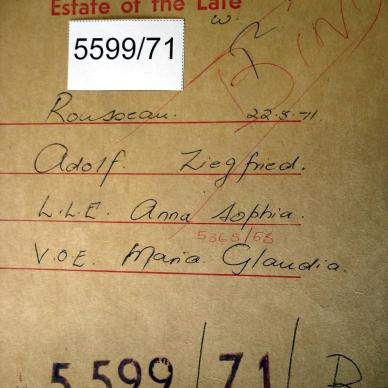 Estate of the Late
w.
5599/71
Rousseau. 22-5-71.
Adolf. Ziegfried.
L.L.E. Anna Sophia.
5365/58
V.O.E. Maria Glaudia.
5 599/71/ B